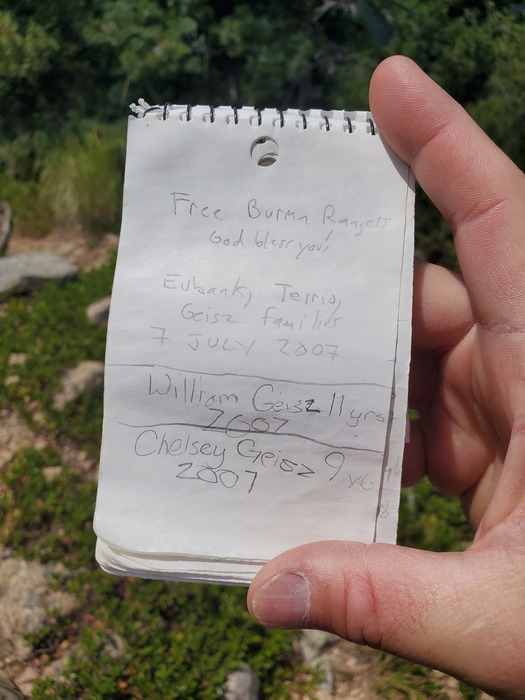 Free Burma Rangers
God bless you!
Eubank, Terrio,
Geisz families
7 JULY 2007
William Geisz 11 yrs
2007
Chelsey Geisz 9 yrs
2007